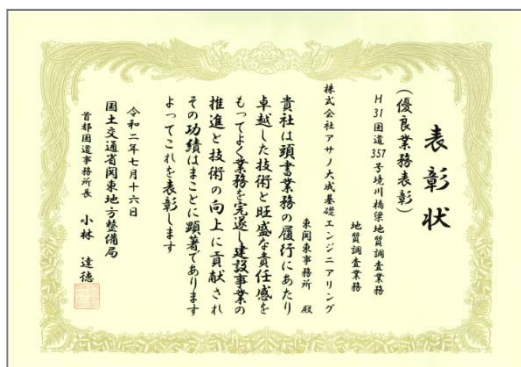 表彰状
(優良業務表彰)
H31国道357号境川橋梁地質調査業務
地質調査業務
株式会社アサノ大成基礎エンジニアリング
東関東事務所 殿
貴社は頭書業務の履行にあたり
卓越した技術と旺盛な責任感を
もってよく業務を完遂し建設事業の
推進と技術の向上に貢献され
その功績はまことに顕著であります
よってこれを表彰します
令和二年七月十六日
国土交通省関東地方整備局
首都国道事務所長 小林 達徳